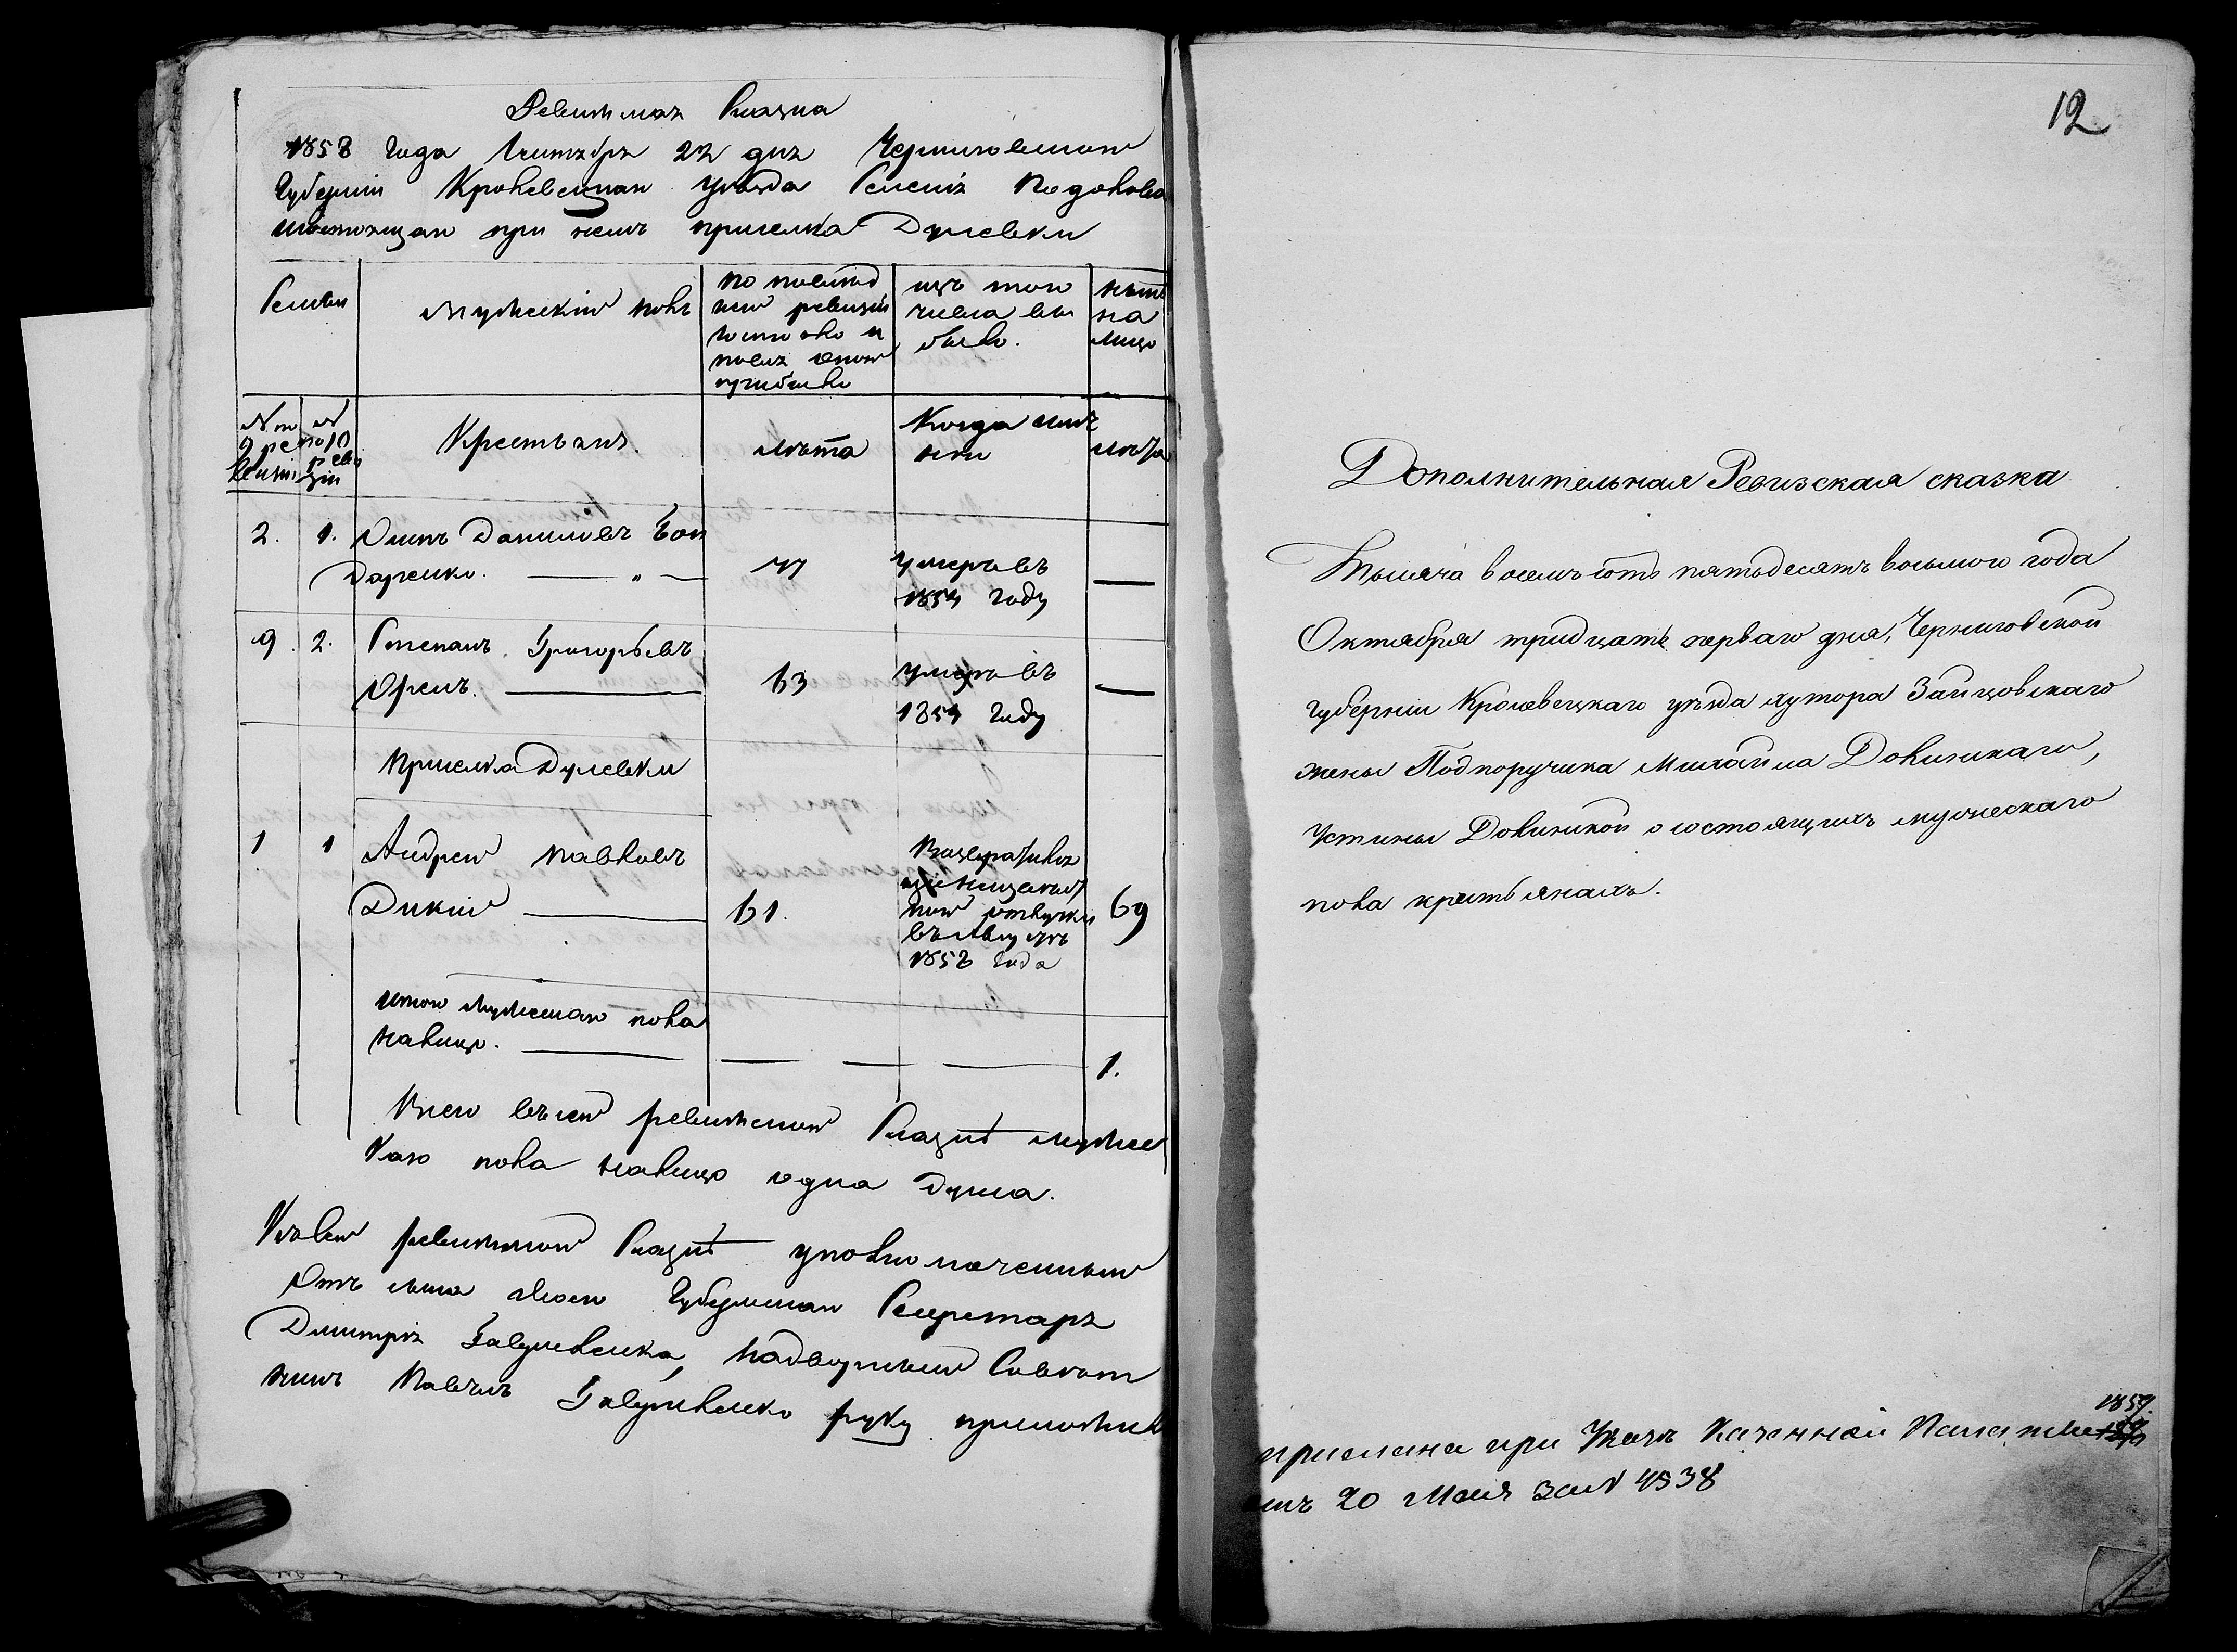 Ревижская Сказка
1858 года Сентября 22 дня Черниговской
Губернии Кролевецкаго уезда Селенія Подолова
состоящаго при немъ приселка Дунаевки
Семьи
мужескій полъ
по послед
ней ревизіи
состояло и
после оной
прибыло
изъ того
числа вы
было.
ныне
на
лицо
№ по
9 ре
визіи
№
по 10
реви
зіи
Крестьяне.
лета
Когда имен
но
лета
2. 1. Осипъ Даниловъ Бон
даренко. — „ — 77 умеръ въ —
1854 году
9. 2. Степанъ Григорьевъ
Орелъ. — 63 умеръ въ —
1854 году
Приселка
1 1 Андрей Павловъ
Дикій — 61. 69
Возвратился
изъ
отлучки
въ Августе
1858 года
Итого мужескаго пола
налицо. — — — — 1.
Всего въ сей ревижской Сказке мужес
каго пола налицо одна душа.
Къ сей ревижской Сказке уполномоченный
Отъ Губернскаго Секретаря
Дмитрія Надворный Советни
Павелъ руку приложилъ
12
Дополнительная Ревизская сказка
Тысяча восемь сотъ пятьдесятъ восьмого года
Октября тридцать перваго дня, Черниговской
губерніи Кролевецкаго уѣзда хутора Зайцовскаго
жены Подпоручика Михаила Долинскаго,
Устиньи Долинской о состоящихъ мужескаго
пола крестьянахъ.
1859.
прислана при Указѣ Казенной Палаты
отъ 20 Мая за № 4538